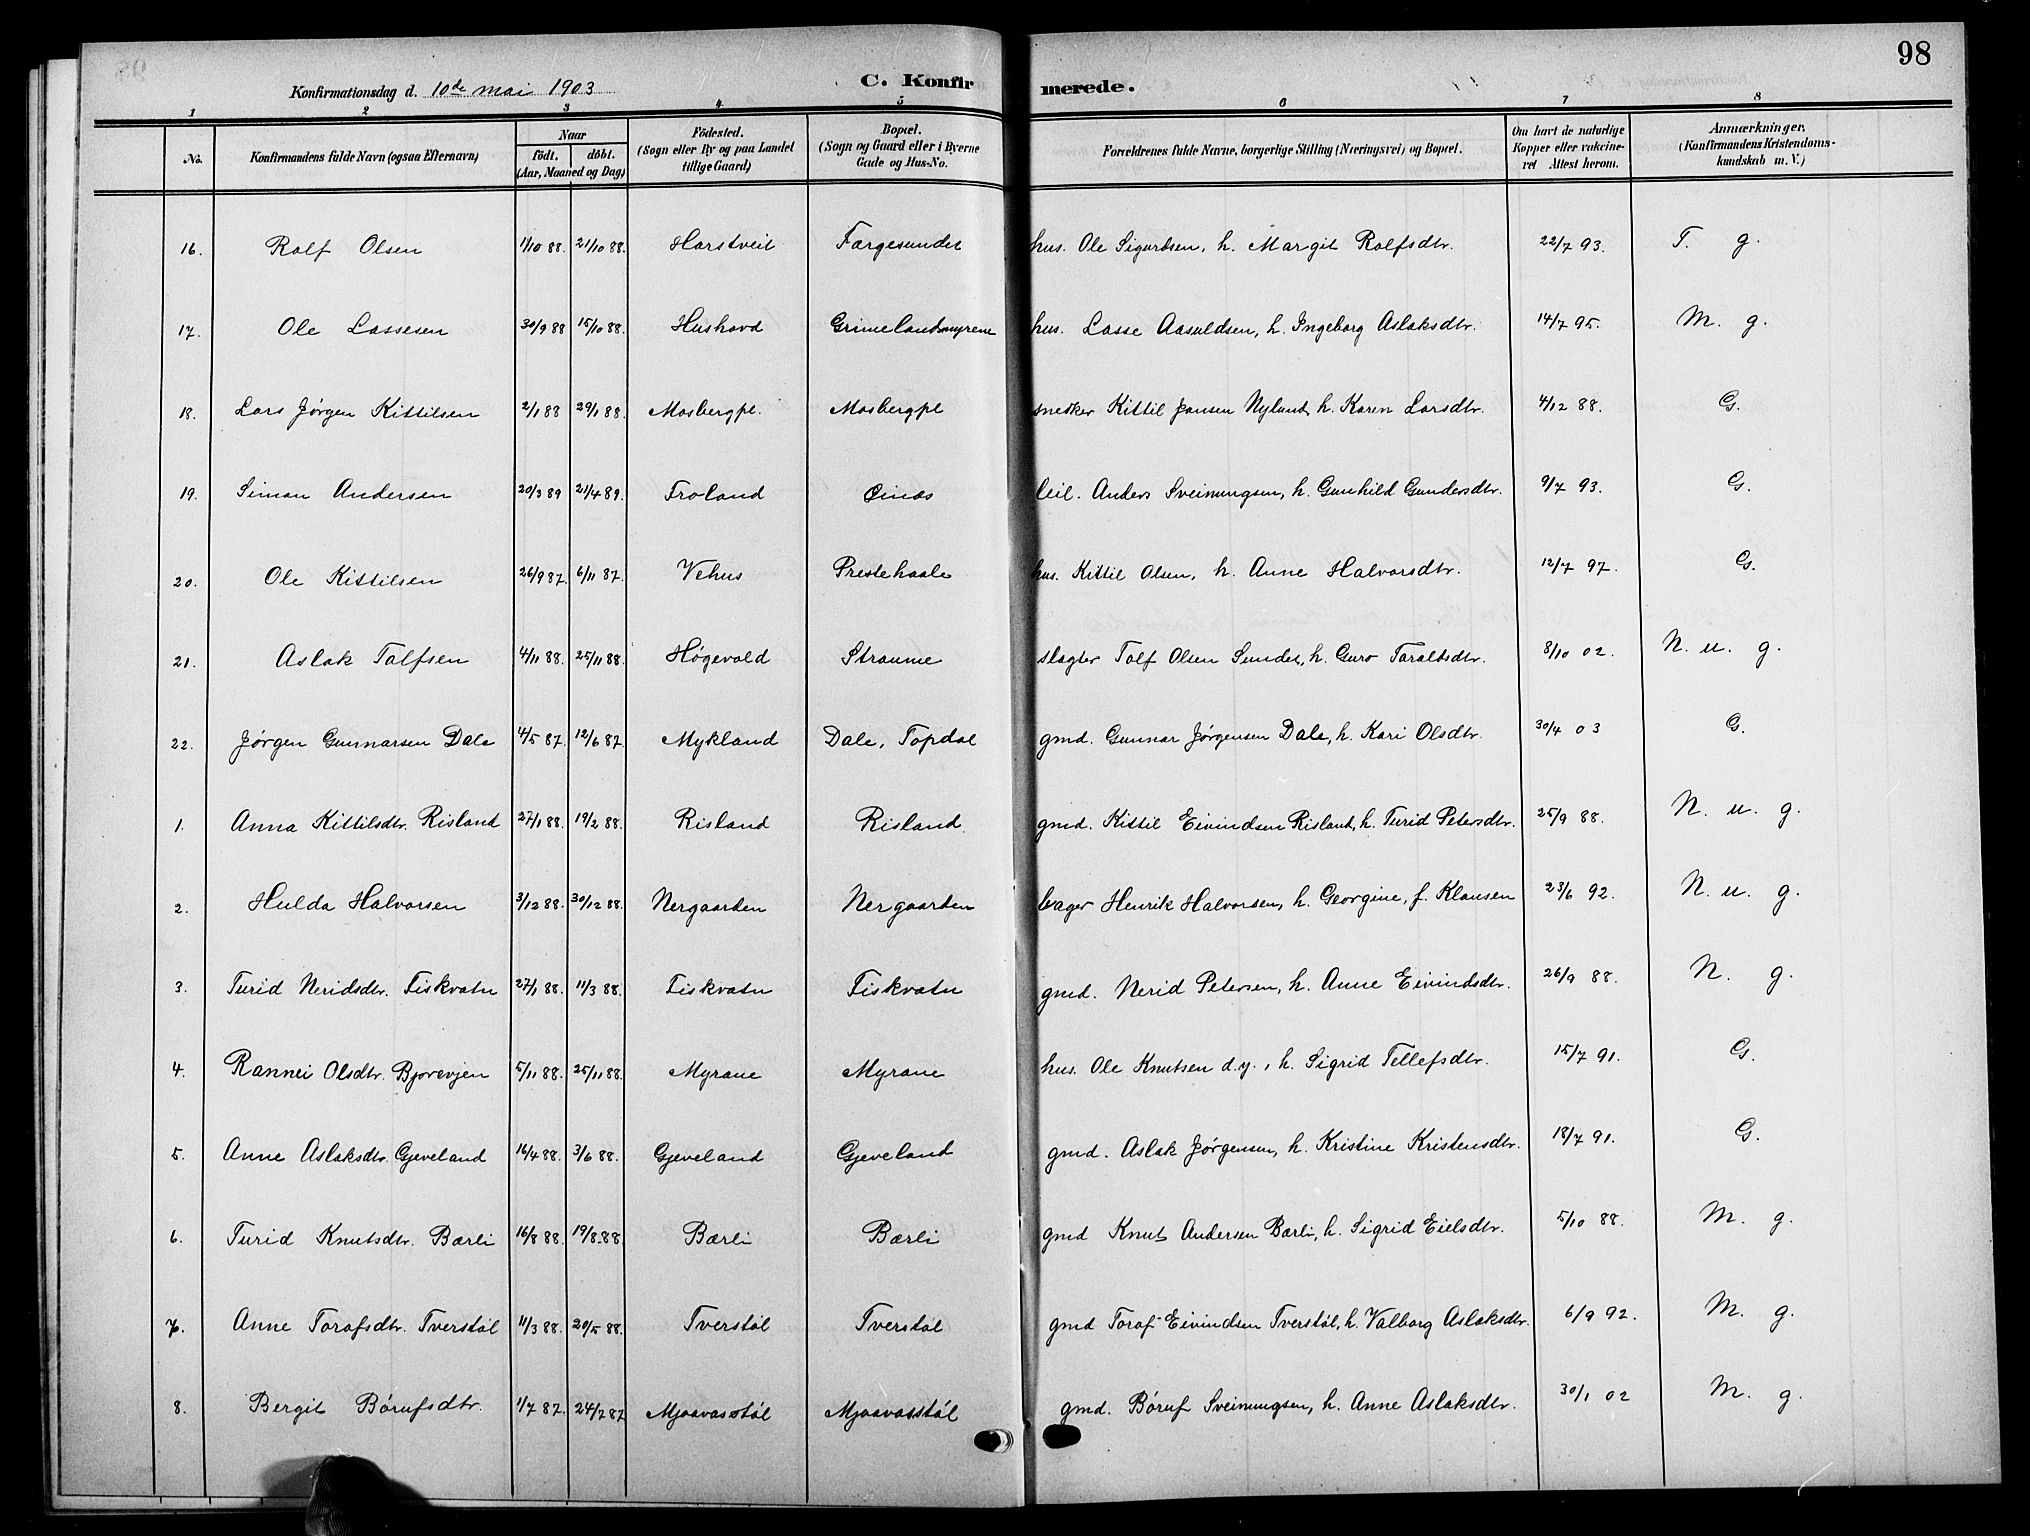 98
Konfirmationsdag d. 10de mai 1903 C. Konfirmerede.
1 2 3 4 5 6 7 8
No. Konfirmandens fulde Navn (ogsaa Efternavn) Naar født. døbt. (Aar, Maaned og Dag) Fødested. (Sogn eller By og paa Landet tillige Gaard) Bopæl. (Sogn og Gaard eller i Byerne Gade og Hus-No. Forældrenes fulde Navne, borgerlige Stilling (Næringsvei) og Bopæl. Om havt de naturlige Kopper eller vaccineret Attest herom. Anmærkninger, (Konfirmandens Kristendomskundskab m. V.)
16. Rolf Olsen 1/10 88. 21/10 88. Harstveit Fargesundet hus. Ole Sigurdsen, h. Margit Rolfsdtr. 22/7 93. T. g.
17. Ole Lassesen 30/9 88 15/10 88. Hushovd Grimelandsmyrene hus. Lasse Aasuldsen, h. Ingeborg Aslaksdtr. 14/7 95. M. g.
18. Lars Jørgen Kittilsen 2/1 88 29/1 88. Mosbergpl. Mosbergpl snedker Kittil Jansen Nyland h. Karen Larsdtr. 4/12 88. G.
19. Simon Andersen 20/3 89 21/4 89. Froland Øinæs leil. Anders Sveinungsen, h. Gunhild Gundersdtr. 9/7 93. G.
20. Ole Kittilsen 26/9 87. 6/11 87. Vehus Prestehaale hus. Kittil Olsen, h. Anne Halvorsdtr. 12/7 97. G.
21. Aslak Tolfsen 4/11 88. 25/11 88. Høgevold Straume slagter Tolf Olsen Sundet, h. Guro Taraldsdtr. 8/10 02. N. u. g.
22. Jørgen Gunnarsen Dale 4/5 87. 12/6 87. Mykland Dale, Topdal gmd. Gunnar Jørgensen Dale, h. Kari Olsdtr. 30/4 03 G.
1. Anna Kittilsdtr. Risland 27/1 88. 19/2 88. Risland Risland. gmd. Kittil Eivindsen Risland, h. Turid Petersdtr. 25/9 88. N. u. g.
2. Hulda Halvorsen 3/12 88. 30/12 88. Nergaarden Nergaarden bager Henrik Halvorsen, h. Georgine, f. Klausen 23/6 92. N. u. g.
3. Turid Neridsdtr. Fiskvatn 27/1 88. 11/3 88. Fiskvatn Fiskvatn gmd. Nerid Petersen, h. Anne Eivindsdtr. 26/9 88. N. g.
4. Rannei Olsdtr. Bjorevjen 5/11 88. 25/11 88. Myrane Myrane hus. Ole Knutsen d.y., h. Sigrid Tellefsdtr. 15/7 91. G.
5. Anne Aslaksdtr. Gjeveland 16/4 88. 3/6 88. Gjeveland Gjeveland gmd. Aslak Jørgensen, h. Kristine Kristensdtr. 18/7 91. G.
6. Turid Knutsdtr. Bærli 16/8 88. 19/8.88 Bærli Bærli gmd Knut Andersen Bærli, h. Sigrid Eielsdtr. 5/10 88. M. g.
7. Anne Torafsdtr. Tverstøl 11/3 88. 20/5 88. Tverstøl Tverstøl gmd Toraf Eivindsen Tverstøl, h. Valborg Aslaksdtr. 6/9 92. M. g.
8. Bergit Børufsdtr. 1/7 87. 24/7 87 Mjaavasstøl Mjaavasstøl gmd. Børuf Sveinungsen, h. Anne Aslaksdtr. 30/1 02 M. g.